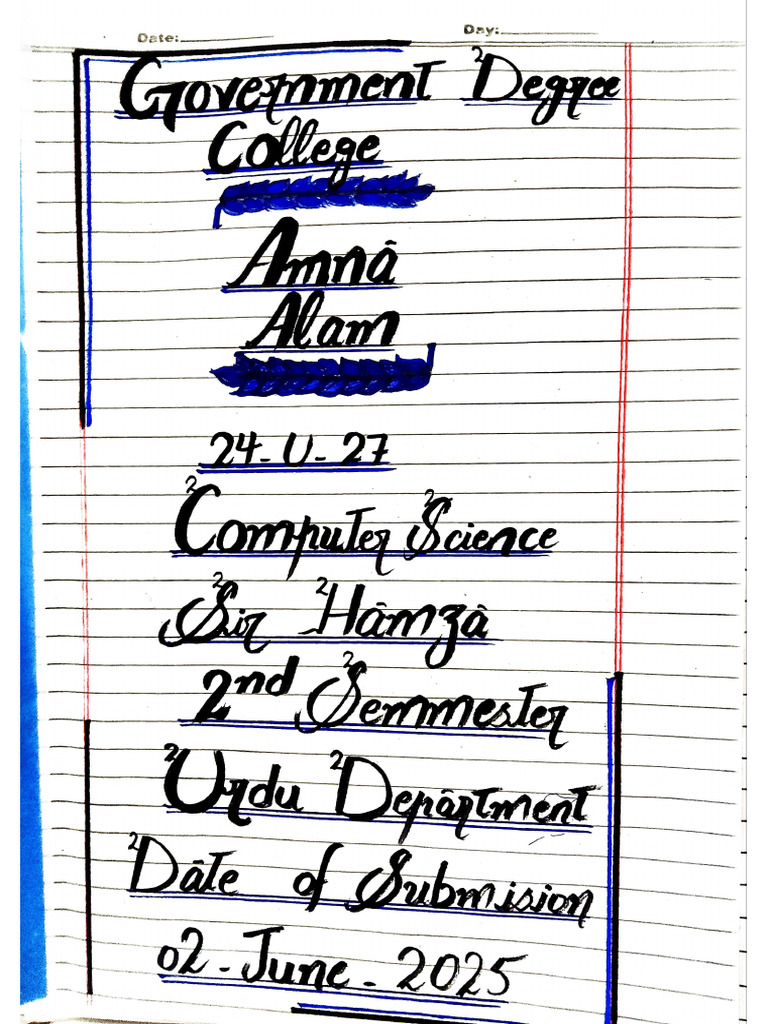 Date: Day:
Government Degree
College
Amna
Alam
24-U-27
Computer Science
Sir Hamza
2nd Semmester
Urdu Department
Date of Submision
02-June-2025